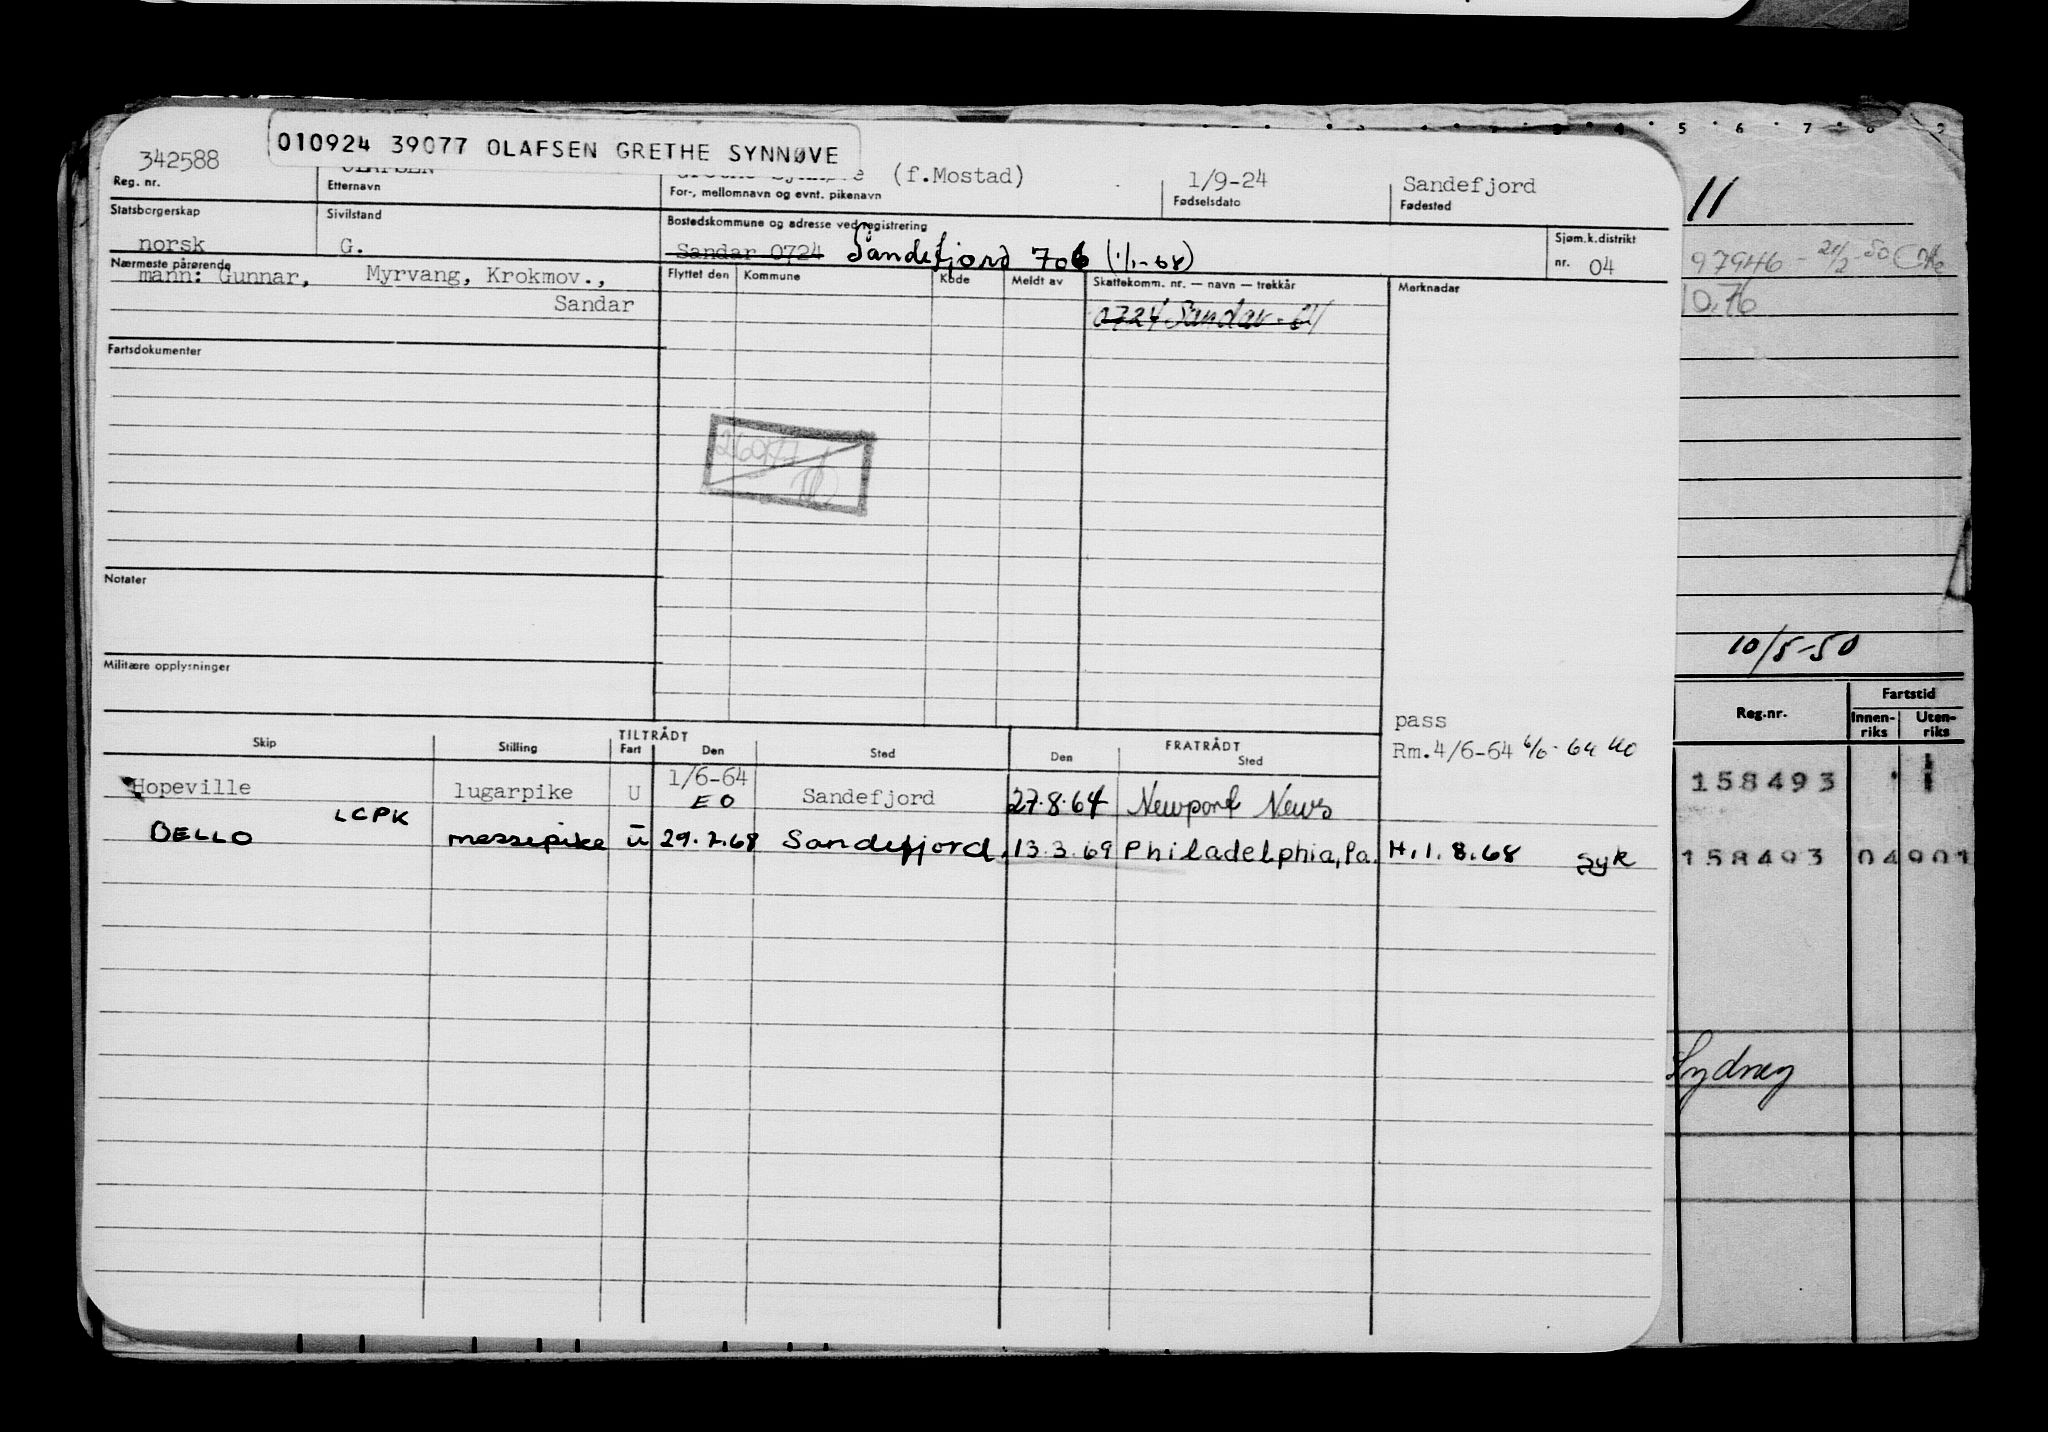 010924 39077 OLAFSEN GRETHE SYNNØVE
342588 (f.Mostad) 1/9-24 Sandefjord
Reg. nr. Etternavn For-, mellomnavn og evnt. pikenavn Fødselsdato Fødested
Statsborgerskap Sivilstand Bostedskommune og adresse ved registrering Sjøm.k.distrikt
norsk G. Sandar 0724 Sandefjord 706 (1/1-68) nr. 04
Nærmeste pårørende Flyttet den Kommune Kode Meldt av Skattekomm. nr. — navn — trekkår Merknader
mann: Gunnar, Myrvang, Krokmov.,
Sandar 0724 Sandar - 64
Fartsdokumenter
Notater
Militære opplysninger
pass
Rm.4/6-64 6/6-64
TILTRÅDT FRATRÅDT
Skip Stilling Fart Den Sted Den Sted
Hopeville lugarpike U 1/6-64 Sandefjord 27.8.64 Newport News
EO
LCPK
BELLO messepike U 29.7.68 Sandefjord 13.3.69 Philadelphia, Pa. H.1.8.68 syk
5 6 7 8 9
11
97946
10.76
10/5-50
Reg.nr. Fartstid
Innen-riks Uten-riks
158493
158493 04901
Sydney